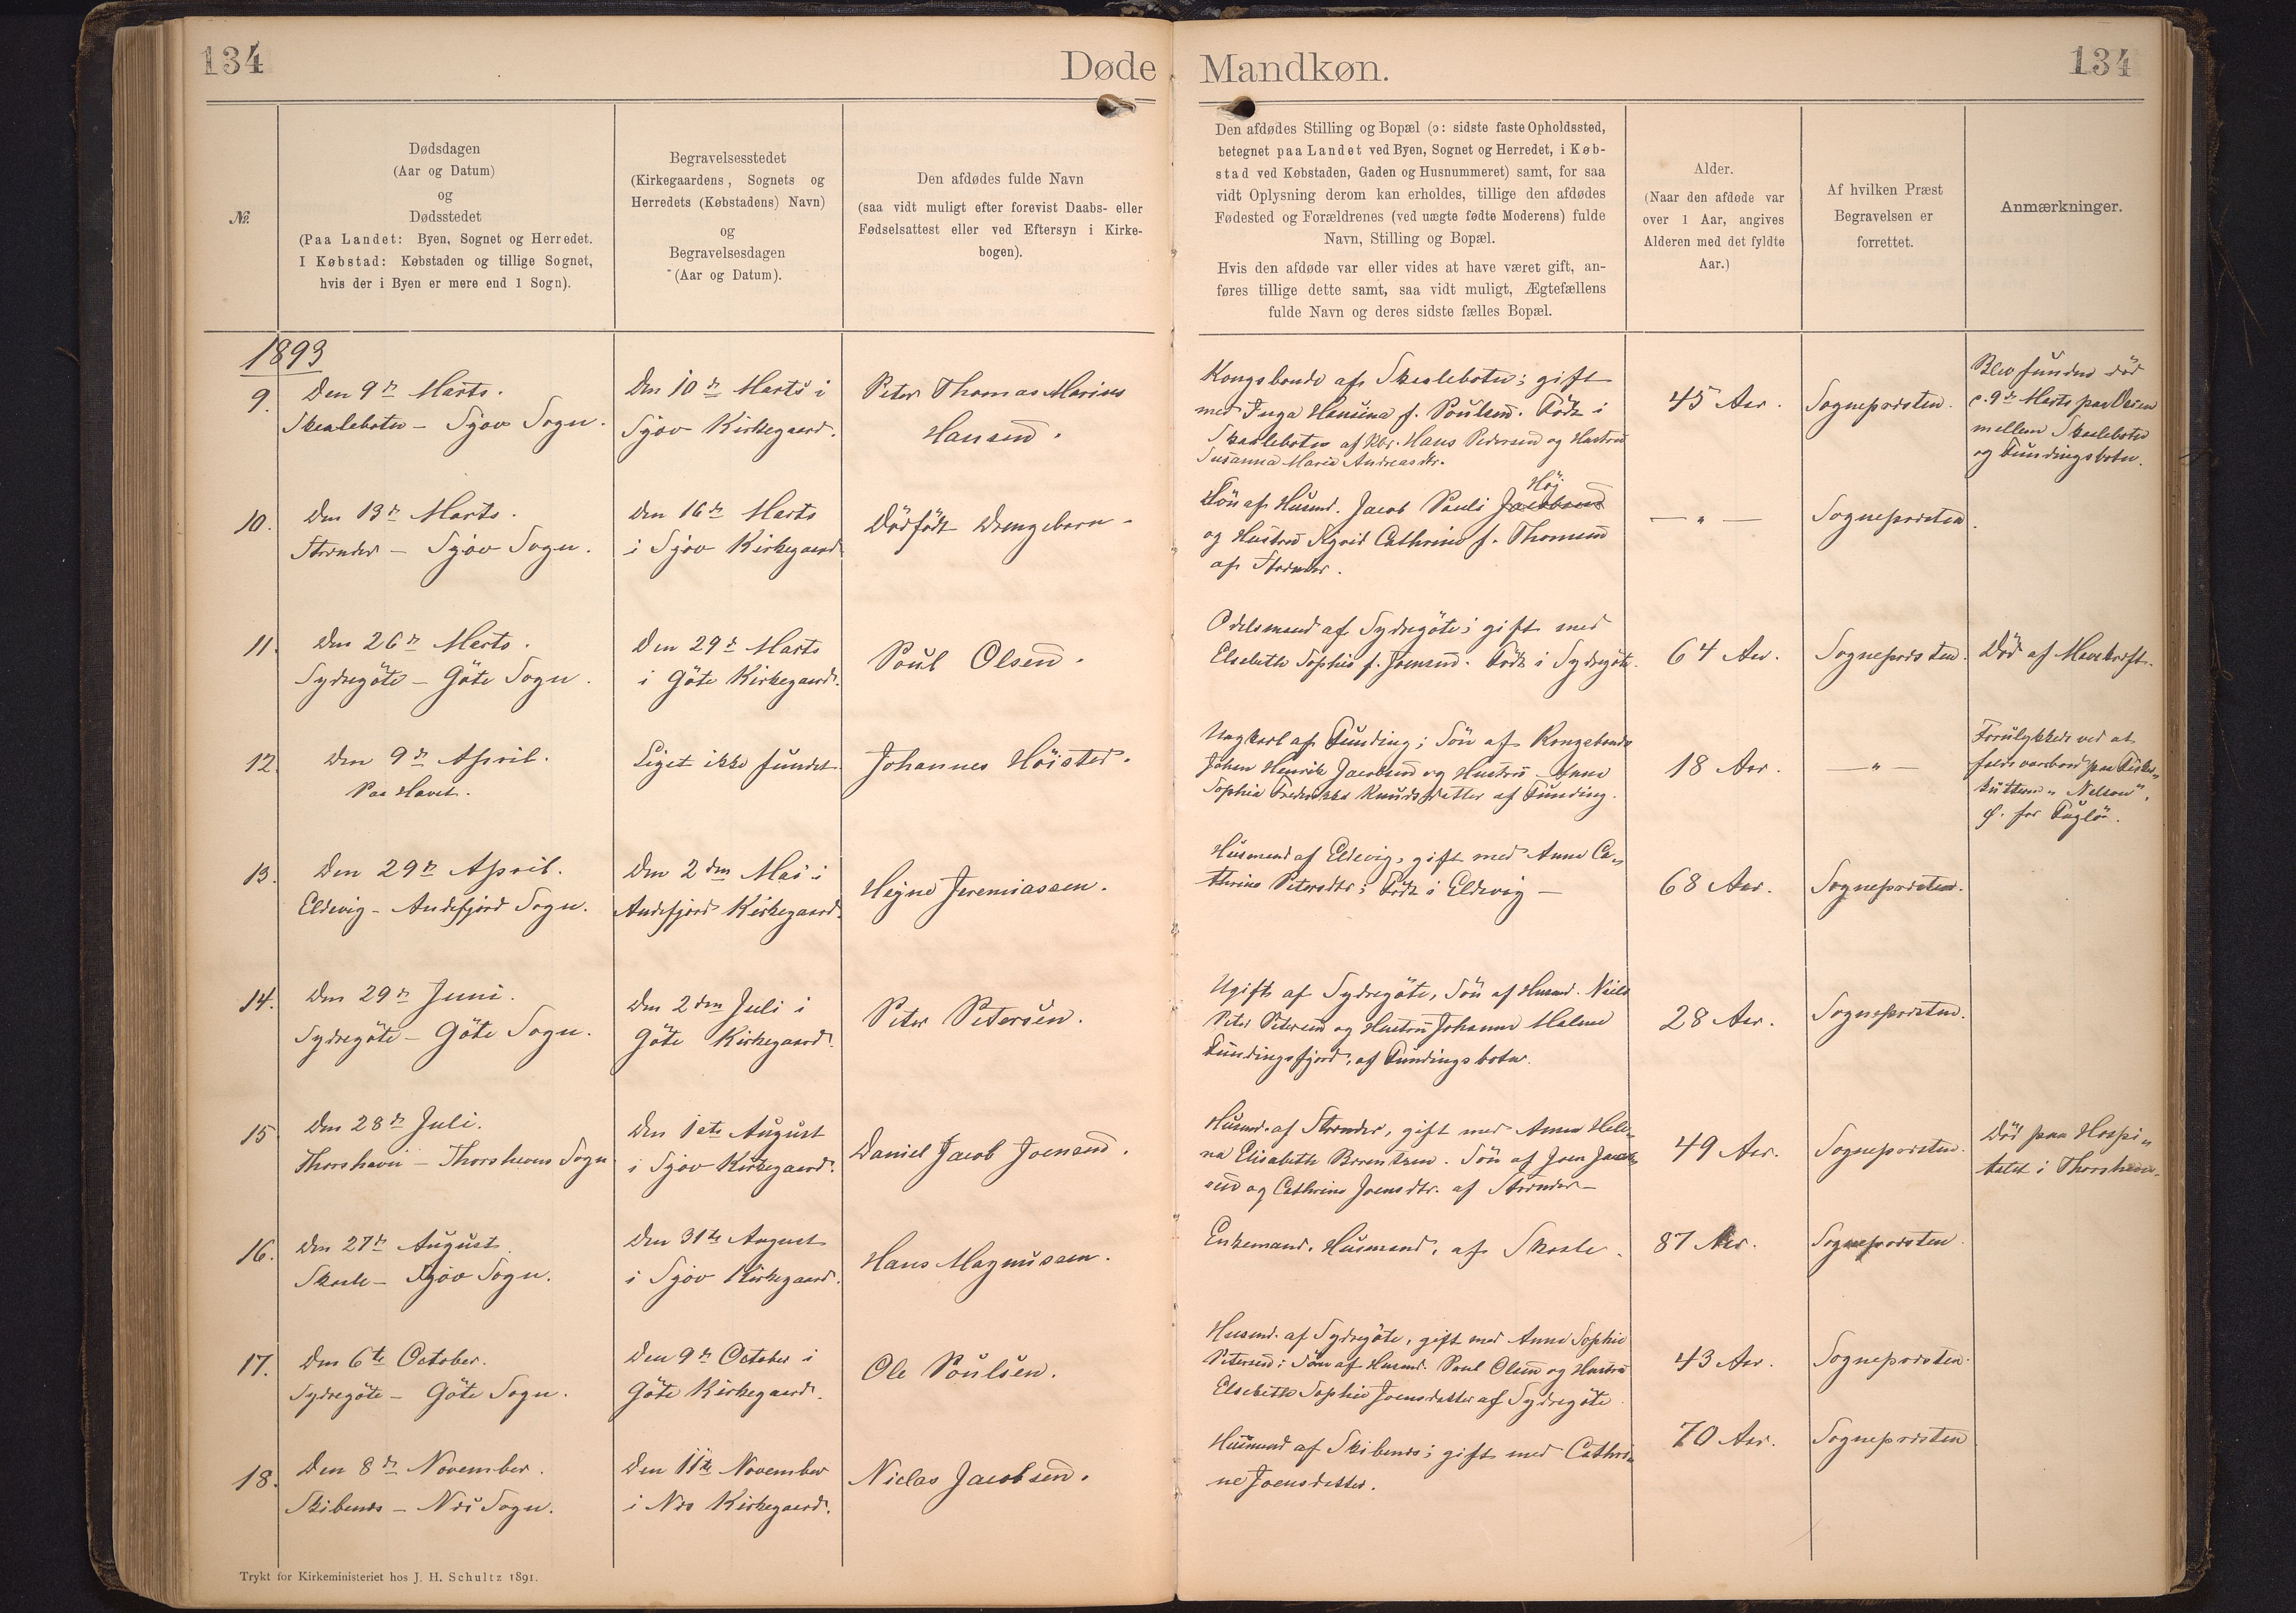 134
Døde Mandkøn.
134
№.
Dødsdagen
(Aar og Datum)
og
Dødsstedet
(Paa Landet: Byen, Sognet og Herredet.
I Købstad: Købstaden og tillige Sognet,
hvis der i Byen er mere end 1 Sogn).
Begravelsesstedet
(Kirkegaardens, Sognets og
Herredets (Købstadens) Navn)
og
Begravelsesdagen
(Aar og Datum).
Den afdødes fulde Navn
(saa vidt muligt efter forevist Daabs- eller
Fødselsattest eller ved Eftersyn i Kirke-
bogen).
Den afdødes Stilling og Bopæl (ɔ: sidste faste Opholdssted,
betegnet paa Landet ved Byen, Sognet og Herredet, i Køb-
stad ved Købstaden, Gaden og Husnummeret) samt, for saa
vidt Oplysning derom kan erholdes, tillige den afdødes
Fødested og Forældrenes (ved uægte fødte Moderens) fulde
Navn, Stilling og Bopæl.
Hvis den afdøde var eller vides at have været gift, an-
føres tillige dette samt, saa vidt muligt, Ægtefællens
fulde Navn og deres sidste fælles Bopæl.
Alder.
(Naar den afdøde var
over 1 Aar, angives
Alderen med det fyldte
Aar.)
Af hvilken Præst
Begravelsen er
forrettet.
Anmærkninger.
1893
9.
Den 9de Marts.
Skaalebotn - Sjov Sogn.
Den 10de Marts i
Sjov Kirkegaard.
Peter Thomas Marius
Hansen.
Kongsbonde af Skaalebotn; gift
med Inga Hansina f. Poulsen. Født i
Skaalebotn af Kbr. Hans Pedersen og Hustru
Susanna Maria Andreasdtr.
45 Aar.
Sognepræsten.
Blev funden død
d. 9de Marts paa Veien
mellem Skaalebotn
og Fundingsbotn.
10.
Den 13de Marts.
Strænder - Sjov Sogn.
Den 16de Marts
i Sjov Kirkegaard
Dödfödt Drengebarn -
Høj
Sön af Husmd. Jacob Pauli Jacobsen
og Hustru Sigrid Cathrine f. Thomsen
af Strænder.
— " —
Sognepræsten.
11.
Den 26de Marts.
Sydregöte - Göte Sogn.
Den 29de Marts
i Göte Kirkegaard.
Poul Olsen.
Odelsmand af Sydregöte; gift med
Elsebeth Sophie f. Joensen. Født i Sydregöte.
64 Aar.
Sognepræsten.
Død af Mavekræft.
12.
Den 9de April.
Paa Havet.
Liget ikke fundet.
Johannes Höisted.
Ungkarl af Funding; Sön af Kongsbonde
Johan Henrik Jacobsen og Hustru Anna
Sophia Frederikka Knudsdatter af Funding.
18 Aar.
— " —
Forulykkede ved at
falde overbord paa Fisker-
kutteren "Nelson",
Ø. for Fuglö.
13.
Den 29de April.
Eldevig - Andefjord Sogn.
Den 2den Mai i
Andefjord Kirkegaard.
Hejne Jeremiassen.
Husmand af Eldevig, gift med Anne Ca-
thrine Petersdtr; Født i Eldevig —
68 Aar.
Sognepræsten.
14.
Den 29de Juni.
Sydregöte - Göte Sogn.
Den 2den Juli i
Göte Kirkegaard.
Peter Petersen.
Ugift af Sydregöte, Sön af Husmd. Niels
Peter Petersen og Hustru Johanne Malene
Fundingsfjord, af Fundingsbotn.
28 Aar.
Sognepræsten.
15.
Den 28de Juli.
Thorshavn - Thorshavns Sogn
Den 1ste August
i Sjov Kirkegaard.
Daniel Jacob Joensen.
Husmd. af Strænder, gift med Anna Hele-
na Elisabeth Berentsen. Sön af Joen Jacob-
sen og Cathrine Joensdtr. af Strænder —
49 Aar.
Sognepræsten.
Død paa Hospi-
talet i Thorshavn.
16.
Den 27de August.
Skaale - Sjov Sogn.
Den 31te August
i Sjov Kirkegaard.
Hans Magnussen.
Enkemand, Husmand, af Skaale.
87 Aar.
Sognepræsten.
17.
Den 6te October.
Sydregöte - Göte Sogn.
Den 9de October i
Göte Kirkegaard.
Ole Poulsen.
Husmd. af Sydregöte, gift med Anne Sophie
Petersen; Sön af Husmd. Poul Olsen og Hustru
Elsebeth Sophie Joensdatter af Sydregöte
43 Aar.
Sognepræsten.
18.
Den 8de November.
Skibenæs - Næs Sogn.
Den 11te November
i Næs Kirkegaard.
Niclas Jacobsen.
Husmand af Skibenæs; gift med Cathri-
ne Joensdatter.
70 Aar.
Sognepræsten
Trykt for Kirkeministeriet hos J. H. Schultz 1891.